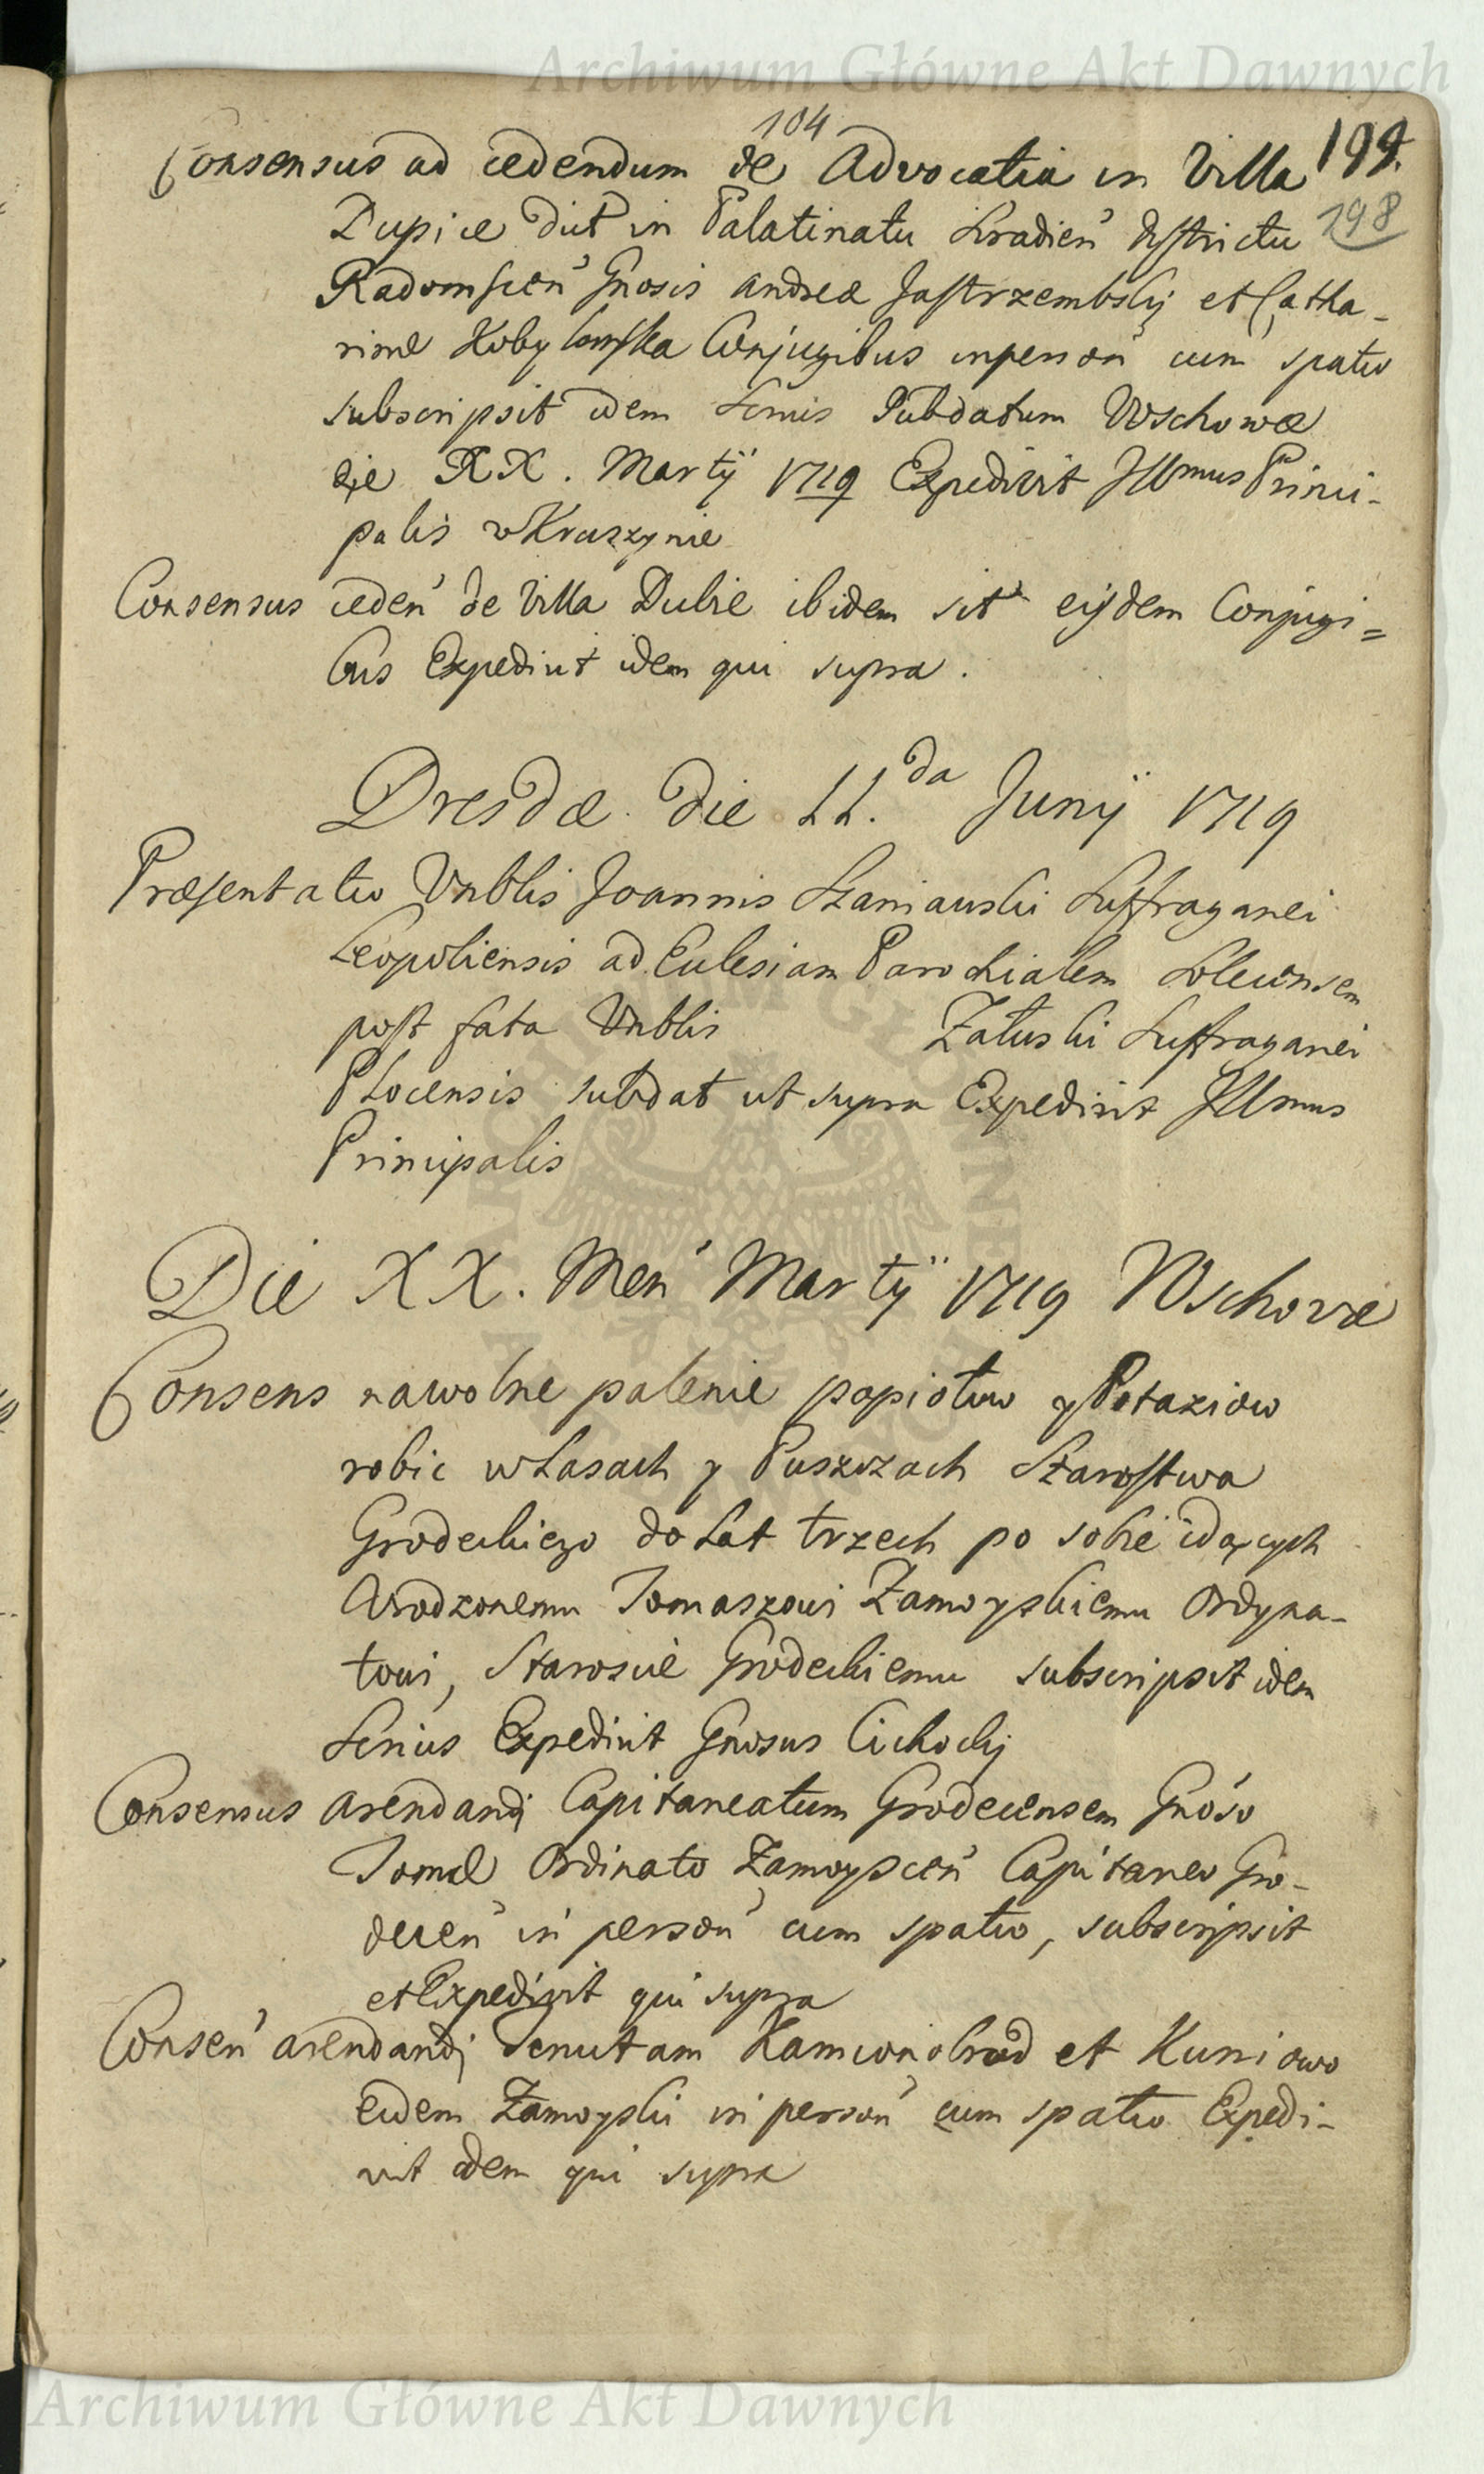 Archiwum Główne Akt Dawnych
104
199.
198
Consensus ad cedendum de Advocatia in Villa
Dupice dict in Palatinatu Siradien Districtu
Radomscen Gnosis Andreæ Jastrzembskj et Catha-
rinæ Kobylanska Conjugibus in person cum spatio
subscripsit idem Sernis Subdatum Wschowæ
die XX. Martij 1719 Expedivit Illmus Princi-
palis w Kruszynie
Consensus ceden de Villa Dubie ibidem sit eijsdem Conjugi=
bus Expedivit idem qui supra.
Dresdæ die 22.da Junij 1719
Præsentatio Vnblis Joannis Szaniauski Suffraganei
Leopoliensis ad Eclesiam Parochialem Solecensem
post fata Vnblis Załuski Suffraganei
Plocensis subdat ut supra Expedivit Illmus
Principalis
Die XX. Men Martij 1719 Wschovæ
Consens na wolne palenie popiołuw y Potaziow
robic w Lasach y Puszczach Starostwa
Grodeckiego do Lat trzech po sobie idących
Urodzonemu Tomaszowi Zamoyskiemu Ordyna-
towi, Staroscie Grodeckiemu subscripsit idem
Serius Expedivit Gnosus Cichockj
Consensus arendandj Capitaneatum Grodecensem Gnoso
Tomæ Ordinato Zamoyscen Capitaneo Gro-
decen in person cum spatio, subscripsit
et Expedivit qui supra
Consen arendandj Tenutam Kamionobrod et Kuniowo
eidem Zamoyski in person cum spatio Expedi-
vit idem qui supra
Archiwum Główne Akt Dawnych